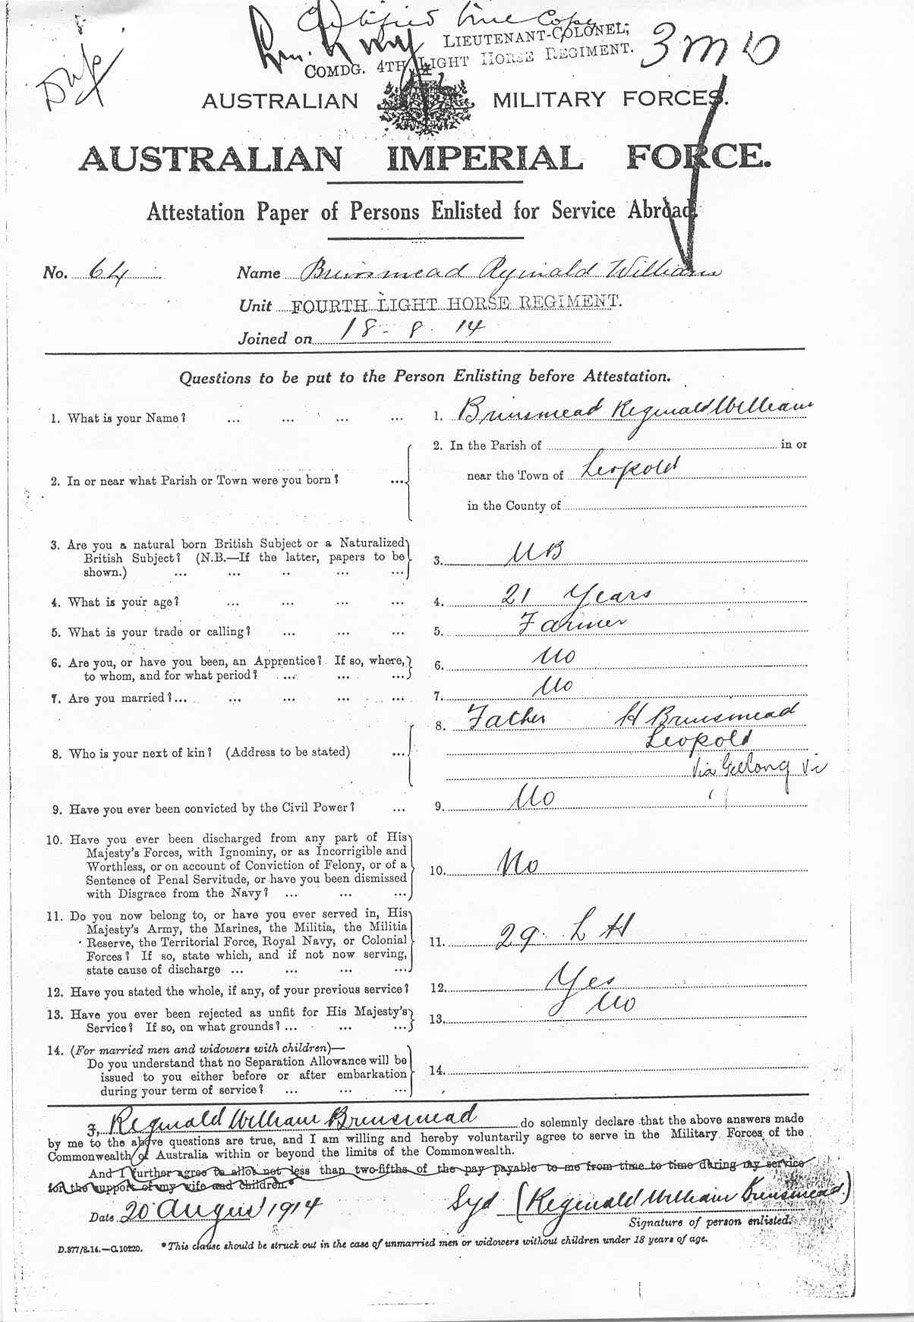 Certified True Copy
LIEUTENANT-COLONEL;
COMDG. 4TH LIGHT HORSE REGIMENT.
3 M D
Dup
AUSTRALIAN MILITARY FORCES.
AUSTRALIAN IMPERIAL FORCE.
Attestation Paper of Persons Enlisted for Service Abroad.
No. 64 Name Brinsmead Reginald William
Unit FOURTH LIGHT HORSE REGIMENT.
Joined on 18-8-14
Questions to be put to the Person Enlisting before Attestation.
1. What is your Name? ... ... ... ... 1. Brinsmead Reginald William
2. In or near what Parish or Town were you born? ... 2. In the Parish of in or
near the Town of Leopold
in the County of
3. Are you a natural born British Subject or a Naturalized
British Subject? (N.B.—If the latter, papers to be
shown.) ... ... .. ... ... 3. NB
4. What is your age? ... ... ... ... 4. 21 Years
5. What is your trade or calling? ... ... ... 5. Farmer
6. Are you, or have you been, an Apprentice? If so, where,
to whom, and for what period? ... ... ... 6. No
7. Are you married?... ... ... ... ... 7. No
8. Who is your next of kin? (Address to be stated) ... 8. Father H Brinsmead
Leopold
Via Geelong Vic
9. Have you ever been convicted by the Civil Power? ... 9. No
10. Have you ever been discharged from any part of His
Majesty's Forces, with Ignominy, or as Incorrigible and
Worthless, or on account of Conviction of Felony, or of a
Sentence of Penal Servitude, or have you been dismissed
with Disgrace from the Navy? ... ... ... 10. No
11. Do you now belong to, or have you ever served in, His
Majesty's Army, the Marines, the Militia, the Militia
Reserve, the Territorial Force, Royal Navy, or Colonial
Forces? If so, state which, and if not now serving,
state cause of discharge ... ... ... ... 11. 29. L H
12. Have you stated the whole, if any, of your previous service? 12. Yes
13. Have you ever been rejected as unfit for His Majesty's
Service? If so, on what grounds? ... ... ... 13. No
14. (For married men and widowers with children)—
Do you understand that no Separation Allowance will be
issued to you either before or after embarkation
during your term of service? ... ... ... 14.
I, Reginald William Brinsmead do solemnly declare that the above answers made
by me to the above questions are true, and I am willing and hereby voluntarily agree to serve in the Military Forces of the
Commonwealth of Australia within or beyond the limits of the Commonwealth.
And I further agree to allot not less than two-fifths of the pay payable to me from time to time during my service
for the support of my wife and children.*
Date 20 August 1914 Sgd (Reginald William Brinsmead)
Signature of person enlisted.
D.377/8.14.—C.10220. *This clause should be struck out in the case of unmarried men or widowers without children under 18 years of age.